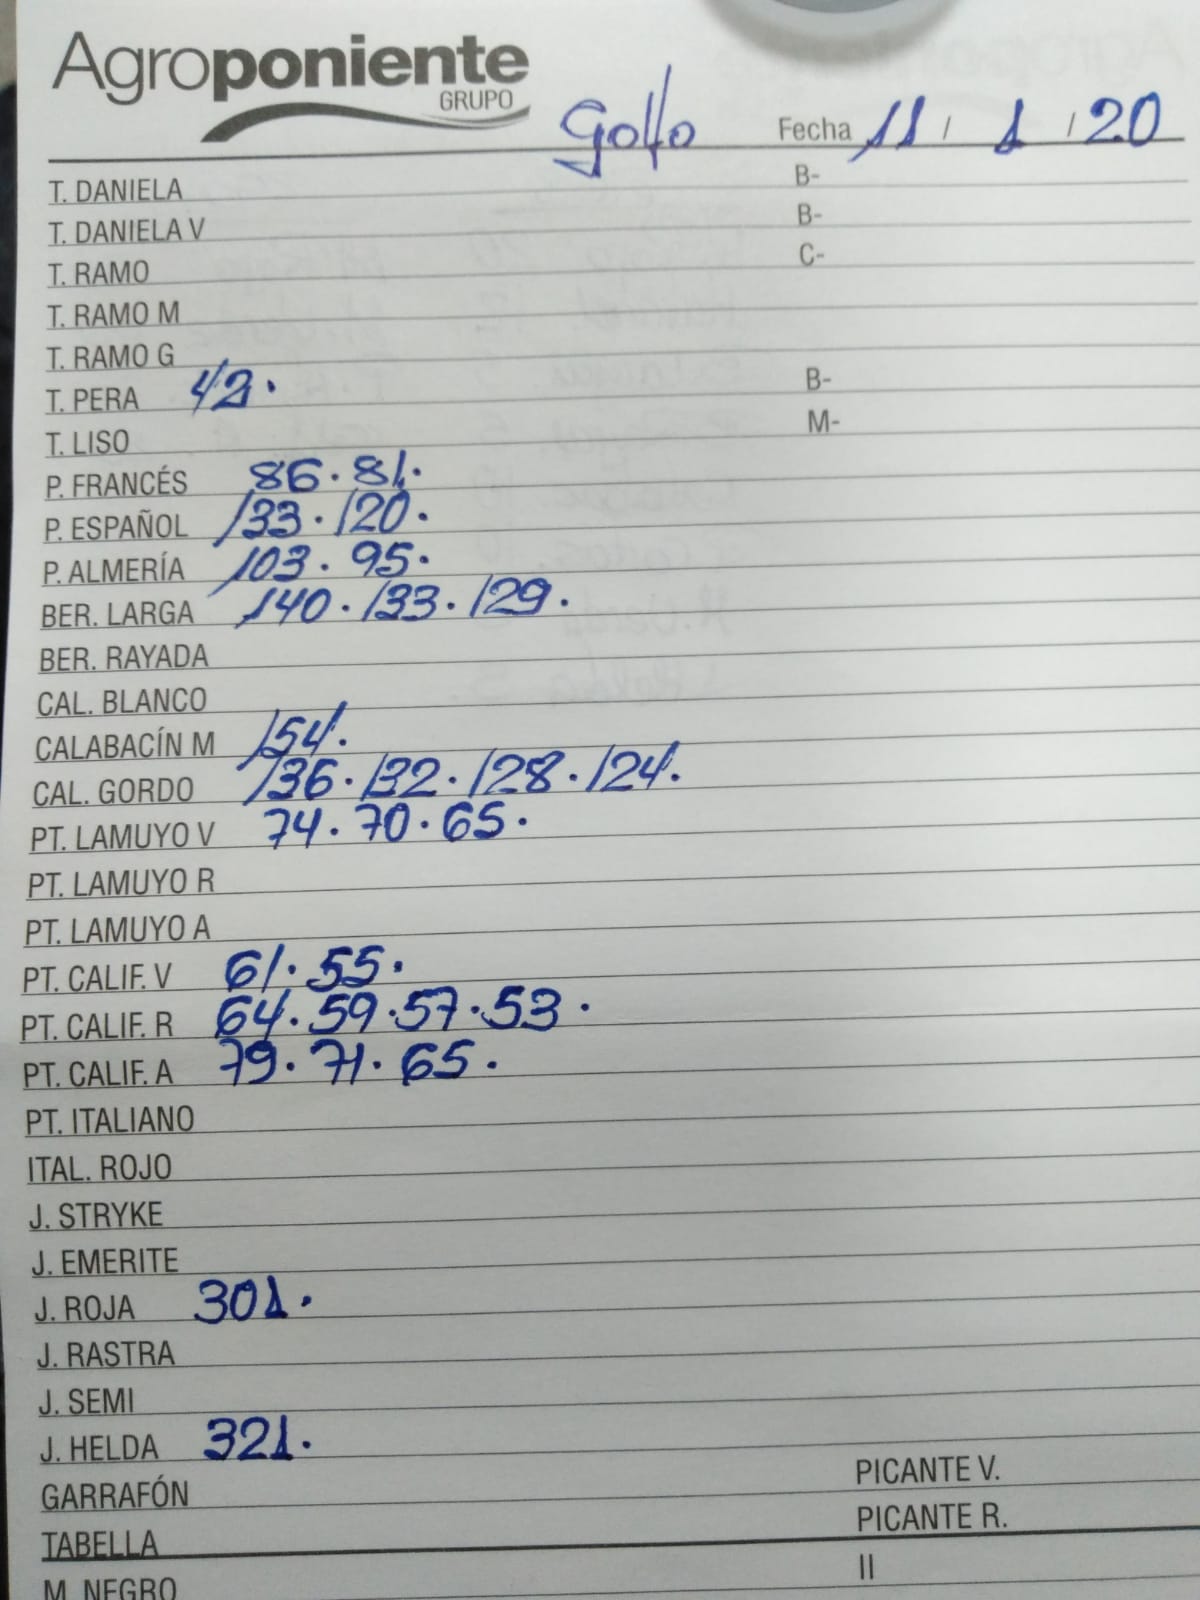 Agroponiente
GRUPO
Golfo Fecha 11 / 1 / 20
T. DANIELA B-
T. DANIELA V B-
T. RAMO C-
T. RAMO M
T. RAMO G
T. PERA 42. B-
T. LISO M-
P. FRANCÉS 86. 81.
P. ESPAÑOL 133. 120.
P. ALMERÍA 103. 95.
BER. LARGA 140. 133. 129.
BER. RAYADA
CAL. BLANCO
CALABACÍN M 154.
CAL. GORDO 136. 132. 128. 124.
PT. LAMUYO V 74. 70. 65.
PT. LAMUYO R
PT. LAMUYO A
PT. CALIF. V 61. 55.
PT. CALIF. R 64. 59. 57. 53.
PT. CALIF. A 79. 71. 65.
PT. ITALIANO
ITAL. ROJO
J. STRYKE
J. EMERITE
J. ROJA 301.
J. RASTRA
J. SEMI
J. HELDA 321.
GARRAFÓN PICANTE V.
TABELLA PICANTE R.
M. NEGRO II